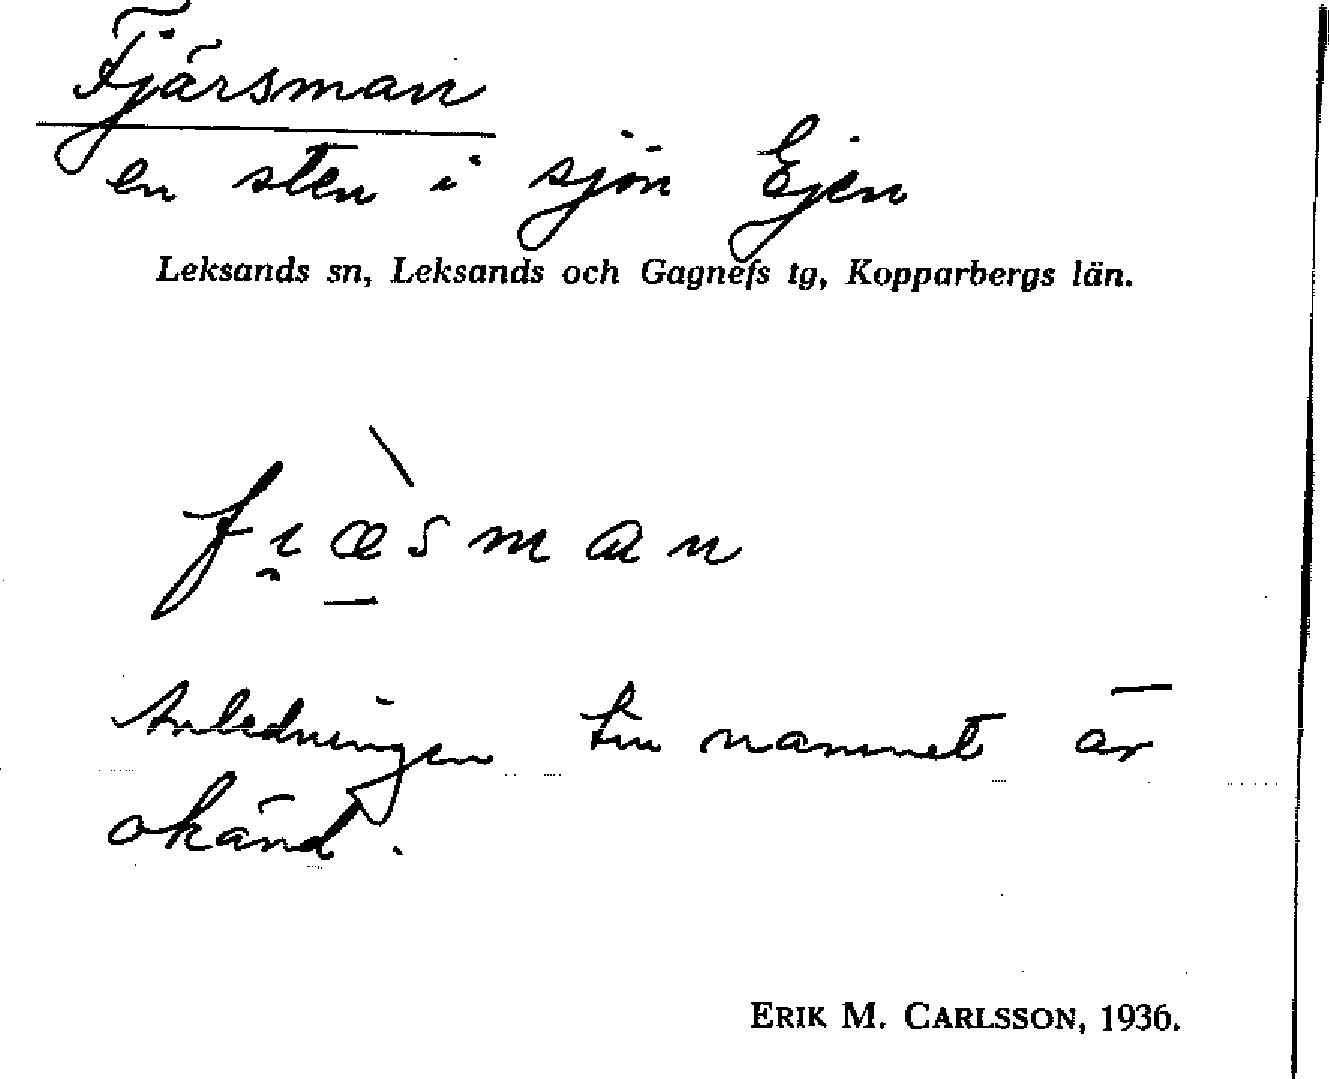 Fjärsman
en sten i sjön Ejen
Leksands sn, Leksands och Gagnefs tg, Kopparbergs län.
fi̯æ̠̀sman
Anledningen till namnet är
okänd.
ERIK M. CARLSSON, 1936.